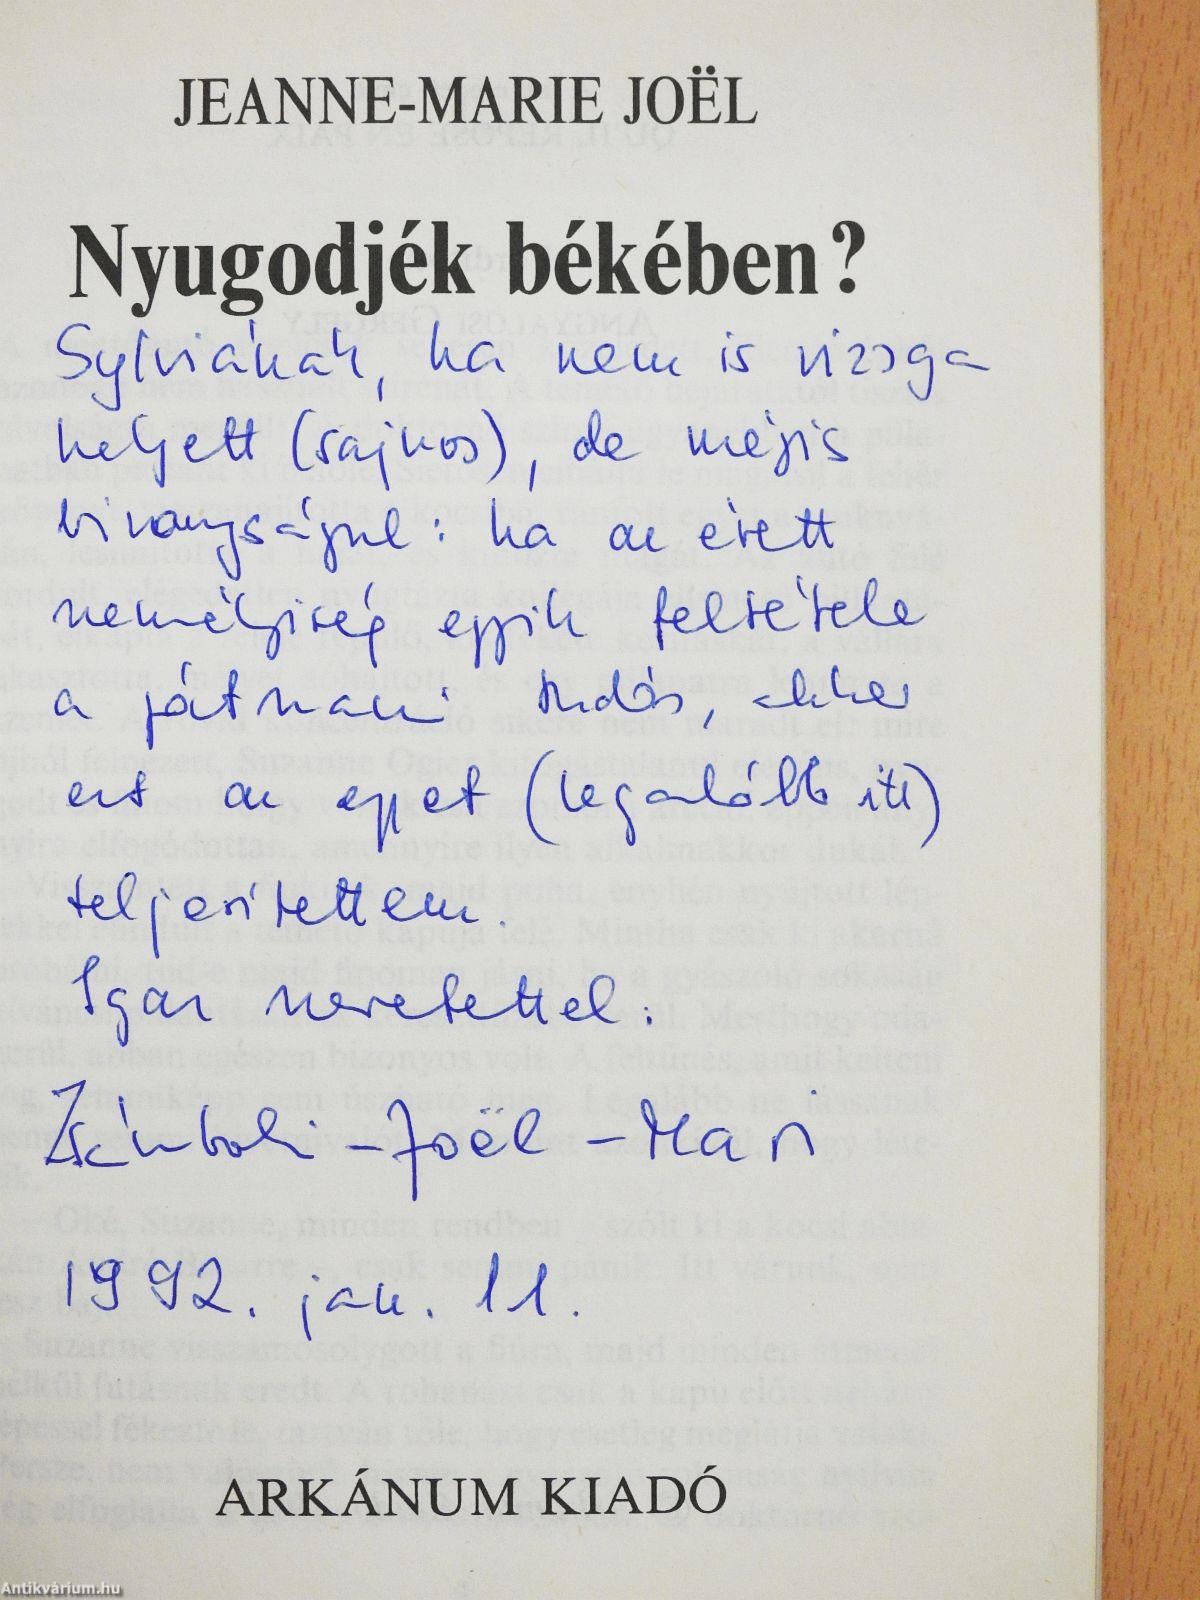 JEANNE-MARIE JOËL
Nyugodjék békében?
Sylviának, ha nem is vizsga
helyett (sajnos), de mégis
bizonyságul: ha az érett
személyiség egyik feltétele
a játszani tudás, akkor
ezt az egyet (legalább itt)
teljesítettem.
Igaz szeretettel:
Joël-Mari
1992. jan. 11.
ARKÁNUM KIADÓ
Antikvárium.hu